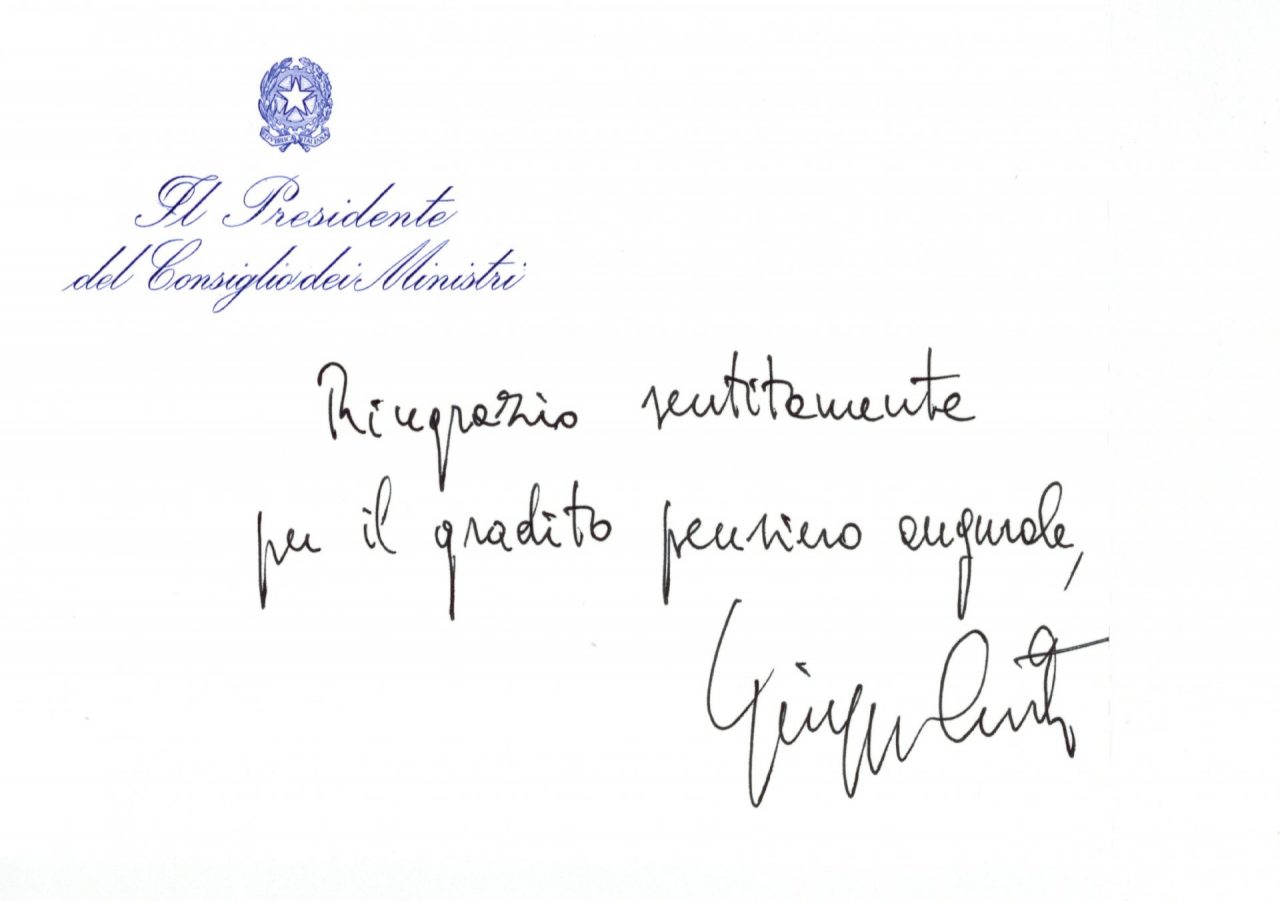 REPVBBLICA ITALIANA
Il Presidente
del Consiglio dei Ministri
Ringrazio sentitamente
per il gradito pensiero augurale,
Giuseppe Conte